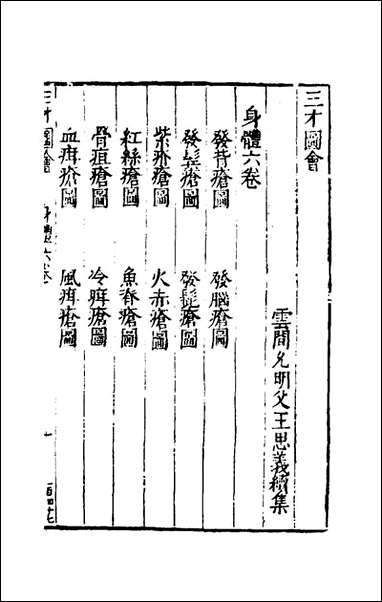 三才圖會
雲間允明父王思義續集
身體六卷
發背瘡圖
發腦瘡圖
發鬢瘡圖
發髭瘡圖
紫疥瘡圖
火赤瘡圖
紅絲瘡圖
魚脊瘡圖
骨疽瘡圖
冷疳瘡圖
血疳瘡圖
風疳瘡圖
三才圖會
身體六卷
一